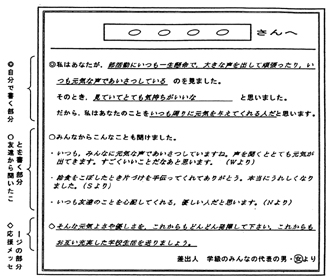 ○○○○ さんへ
◎自分で書く部分
◎私はあなたが、部活動にいつも一生懸命で、大きな声を出して頑張ったり、い
つも元気な声であいさつしている のを見ました。
そのとき、見ていてとても気持ちがいいな と思いました。
だから、私はあなたのことをいつも周りに元気を与えてくれる人だと思います。
○友達から聞いたこ
とを書く部分
○みんなからこんなことも聞けました。
・いつも、みんなに元気な声であいさつしていますね。声を聞くととても元気が
出てきます。すごくいいことだなあと思います。 (Wより)
・給食をこぼしたとき片づけを手伝ってくれてありがとう。本当にうれしくなり
ました。(Sより)
・いつも友達のことを心配してくれる、優しい人だと思います。(Nより)
◇応援メッセ
ージの部分
◇そんな元気よさや優しさを、これからもどんどん発揮して下さい。これからも
お互い充実した学校生活を送りましょう。
差出人 学級のみんなの代表の男・女より